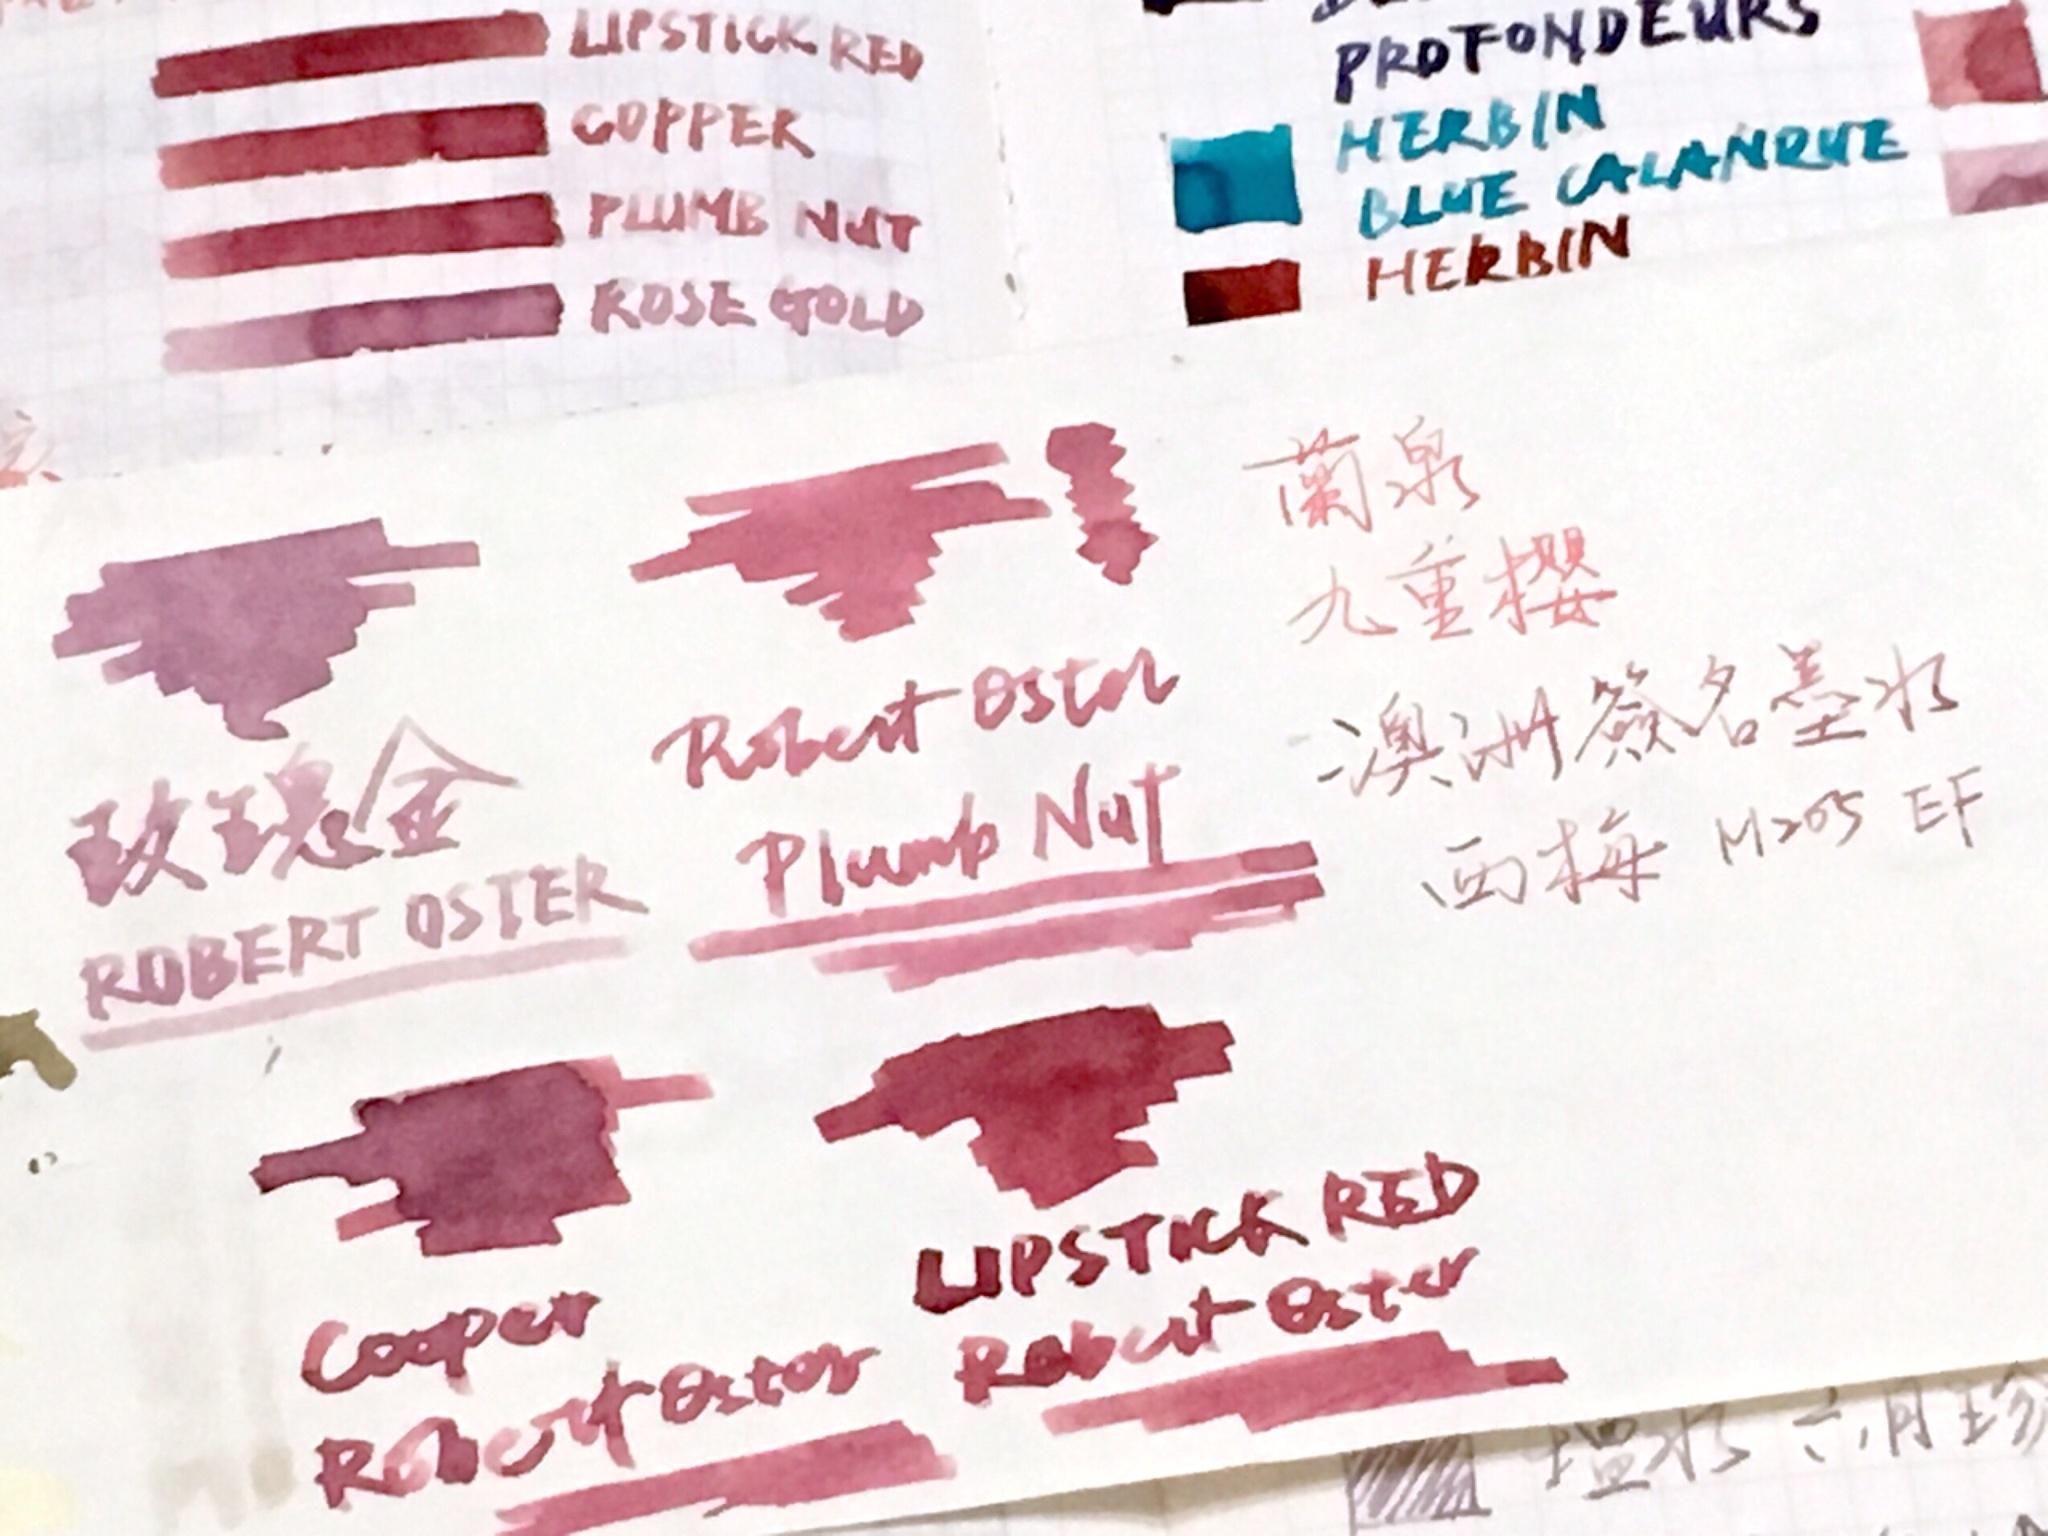 LIPSTICK RED
COPPER
PLUMB NUT
ROSE GOLD
PROFONDEURS
HERBIN
BLUE CALANQUE
HERBIN
玫瑰金
ROBERT OSTER
Robert Oster
Plumb Nut
蘭泉
九重櫻
澳洲簽名墨水
西梅 M205 EF
Cooper
Robert Oster
LIPSTICK RED
Robert Oster
塩水 六月珍